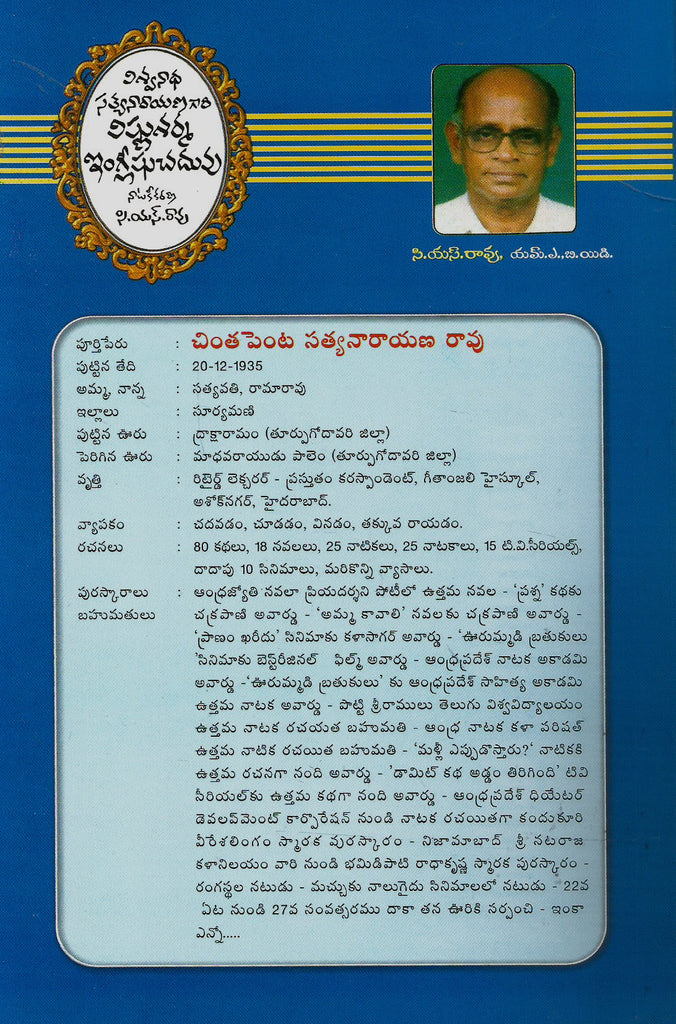 విశ్వనాథ
సత్యనారాయణగారి
విష్ణుశర్మ
ఇంగ్లీషుచదువు
నాటకీకరణ
సి.యస్.రావు
సి.యస్.రావు, యమ్.ఎ.,బి.యిడి.
పూర్తిపేరు : చింతపెంట సత్యనారాయణ రావు
పుట్టిన తేది : 20-12-1935
అమ్మ, నాన్న : సత్యవతి, రామారావు
ఇల్లాలు : సూర్యమణి
పుట్టిన ఊరు : ద్రాక్షారామం (తూర్పుగోదావరి జిల్లా)
పెరిగిన ఊరు : మాధవరాయుడు పాలెం (తూర్పుగోదావరి జిల్లా)
వృత్తి : రిటైర్డ్ లెక్చరర్ - ప్రస్తుతం కరస్పాండెంట్, గీతాంజలి హైస్కూల్,
అశోక్‌నగర్, హైదరాబాద్.
వ్యాపకం : చదవడం, చూడడం, వినడం, తక్కువ రాయడం.
రచనలు : 80 కథలు, 18 నవలలు, 25 నాటికలు, 25 నాటకాలు, 15 టి.వి.సీరియల్స్,
దాదాపు 10 సినిమాలు, మరికొన్ని వ్యాసాలు.
పురస్కారాలు : ఆంధ్రజ్యోతి నవలా ప్రియదర్శని పోటీలో ఉత్తమ నవల - 'ప్రశ్న' కథకు
బహుమతులు చక్రపాణి అవార్డు - 'అమ్మ కావాలి' నవలకు చక్రపాణి అవార్డు -
'ప్రాణం ఖరీదు' సినిమాకు కళాసాగర్ అవార్డు - 'ఊరుమ్మడి బ్రతుకులు
'సినిమాకు బెస్ట్‌రీజినల్ ఫిల్మ్ అవార్డు - ఆంధ్రప్రదేశ్ నాటక అకాడమి
అవార్డు -'ఊరుమ్మడి బ్రతుకులు' కు ఆంధ్రప్రదేశ్ సాహిత్య అకాడమి
ఉత్తమ నాటక అవార్డు - పొట్టి శ్రీరాములు తెలుగు విశ్వవిద్యాలయం
ఉత్తమ నాటక రచయత బహుమతి - ఆంధ్ర నాటక కళా పరిషత్
ఉత్తమ నాటిక రచయిత బహుమతి - 'మళ్లీ ఎప్పుడొస్తారు?' నాటికకి
ఉత్తమ రచనగా నంది అవార్డు - 'డామిట్ కథ అడ్డం తిరిగింది' టివి
సీరియల్‌కు ఉత్తమ కథగా నంది అవార్డు - ఆంధ్రప్రదేశ్ థియేటర్
డెవలప్‌మెంట్ కార్పొరేషన్ నుండి నాటక రచయితగా కందుకూరి
వీరేశలింగం స్మారక పురస్కారం - నిజామాబాద్ శ్రీ నటరాజ
కళానిలయం వారి నుండి భమిడిపాటి రాధాకృష్ణ స్మారక పురస్కారం -
రంగస్థల నటుడు - మచ్చుకు నాలుగైదు సినిమాలలో నటుడు - 22వ
ఏట నుండి 27వ సంవత్సరము దాకా తన ఊరికి సర్పంచి - ఇంకా
ఎన్నో.....